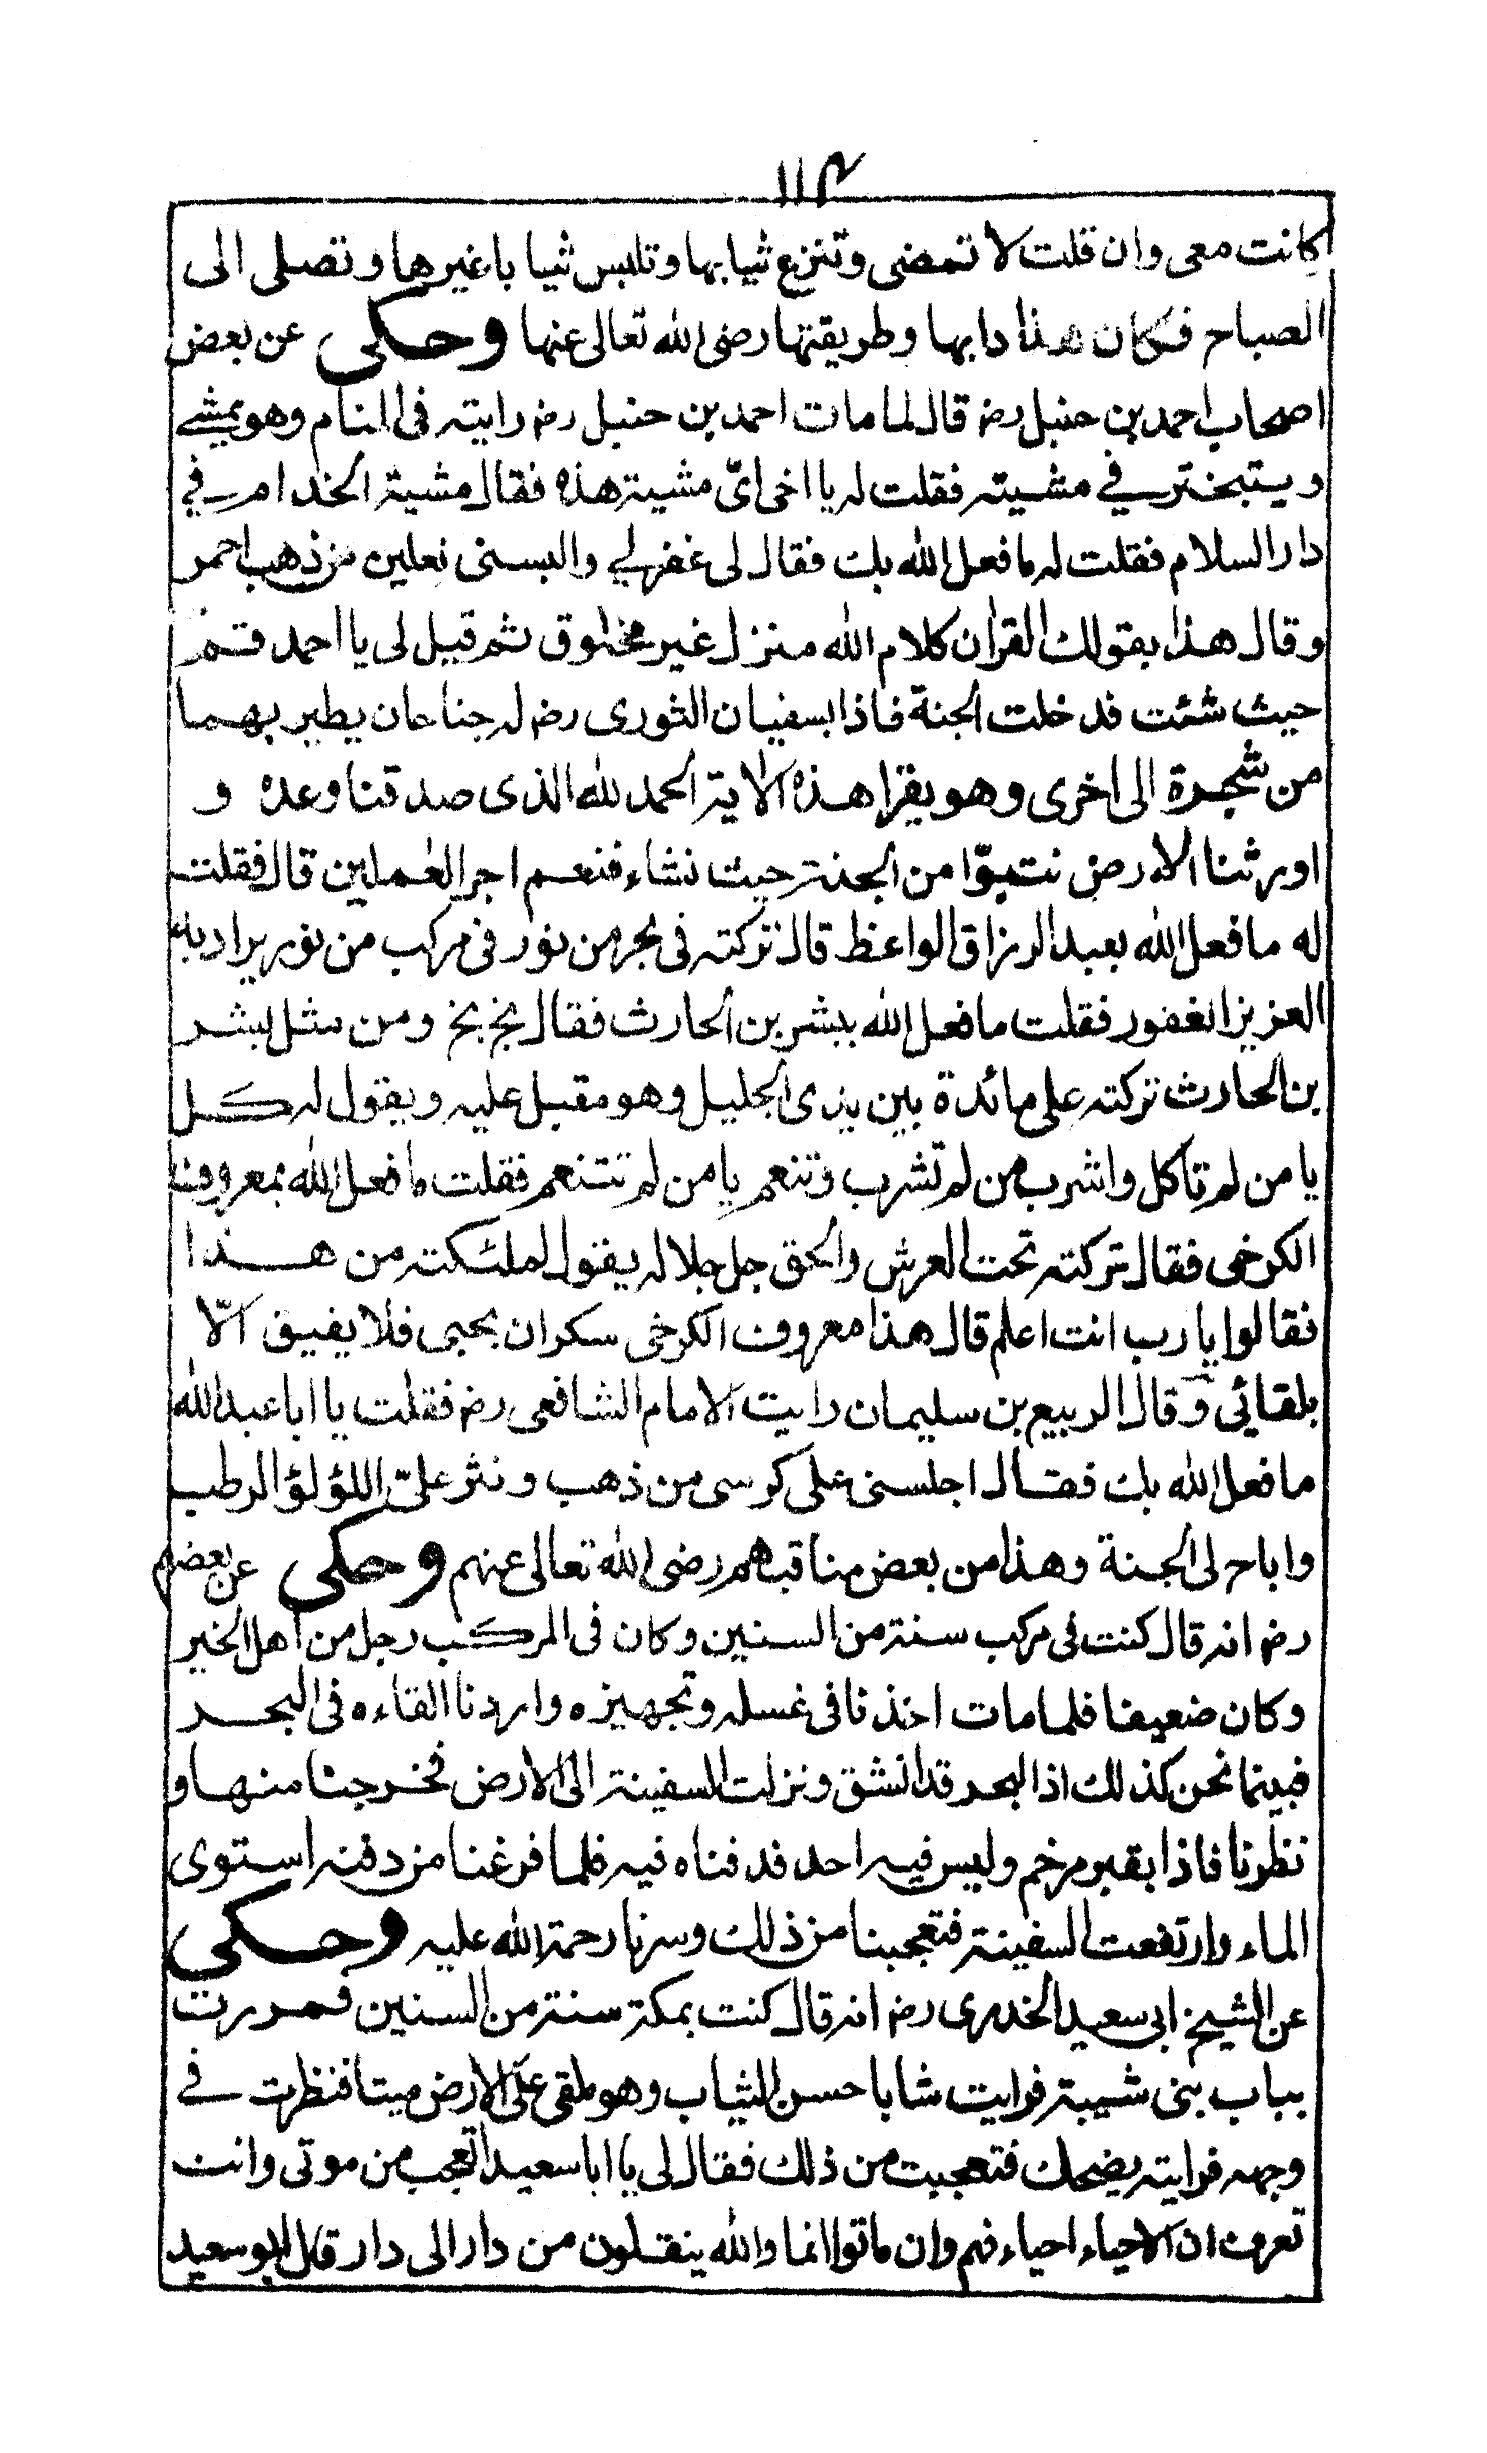 ١١٤
كانت معى وان قلت لا تمضى وتنزع ثيابها وتلبس ثيابا غيرها وتصلى الى
الصباح فكان هذا دابها وطريقتها رضى الله تعالى عنها وحكى عن بعض
اصحاب احمد بن حنبل رضـ قال لما مات احمد بن حنبل رضـ رايته فى المنام وهو يمشے
ويتبختر فے مشيته فقلت له يا اخى اىّ مشية هذه فقال مشية الخدام فے
دار السلام فقلت له ما فعل الله بك فقال لى غفر لے والبسنى نعلين من ذهب احمر
وقال هذا بقولك القران كلام الله منزل غير مخلوق ثم قيل لى يا احمد قم
حيث شئت فدخلت الجنة فاذا بسفيان الثورى رضـ له جناحان يطير بهما
من شجرة الى اخرى وهو يقرا هذه الاية الحمد لله الذى صدقنا وعده و
اورثنا الارض نتبوّا من الجنة حيث نشاء فنعم اجر العٰملين قال فقلت
له ما فعل الله بعبد الرزاق الواعظ قال تركته فى بحر من نور فى مركب من نور يراد به
العزيز الغفور فقلت ما فعل الله ببشر بن الحارث فقال بخ بخ ومن مثل بشر
بن الحارث تركته على مائدة بين يدى الجليل وهو مقبل عليه ويقول له كل
يا من لم تاكل واشرب من لم تشرب وتنعم يا من لم تتنعم فقلت ما فعل الله بمعروف
الكرخى فقال تركته تحت العرش والحق جل جلاله يقول لملئكته من هذا
فقالوا يا رب انت اعلم قال هذا معروف الكرخى سكران بحبى فلا يفيق الّا
بلقائى وقال الربيع بن سليمان رايت الامام الشافعى رضـ فقلت يا ابا عبد الله
ما فعل الله بك فقال اجلسنى على كرسى من ذهب ونثر علىّ اللؤلؤ الرطب
واباح لى الجنة وهذا من بعض مناقبهم رضى الله تعالى عنهم وحكى عن بعضهم
رضـ انه قال كنت فى مركب سنة من السنين وكان فى المركب رجل من اهل الخير
وكان ضعيفا فلما مات اخذنا فى غسله وتجهيزه واردنا القاءه فى البحر
فبينما نحن كذلك اذا البحر قد انشق ونزلت السفينة الى الارض فخرجنا منها و
نظرنا فاذا بقبر مرخم وليس فيه احد فدفناه فيه فلما فرغنا من دفنه استوى
الماء وارتفعت السفينة فتعجبنا من ذلك وسرنا رحمة الله عليه وحكى
عن الشيخ ابى سعيد الخدرى رضـ انه قال كنت بمكة سنة من السنين فمررت
بباب بنى شيبة فرايت شابا حسن الثياب وهو ملقى على الارض ميتا فنظرت فے
وجهه فرايته يضحك فتعجبت من ذلك فقال لى يا ابا سعيد اتعجب من موتى وانت
تعرف ان الاحياء احياء فهم وان ماتوا انما والله ينقلون من دار الى دار قال ابو سعيد